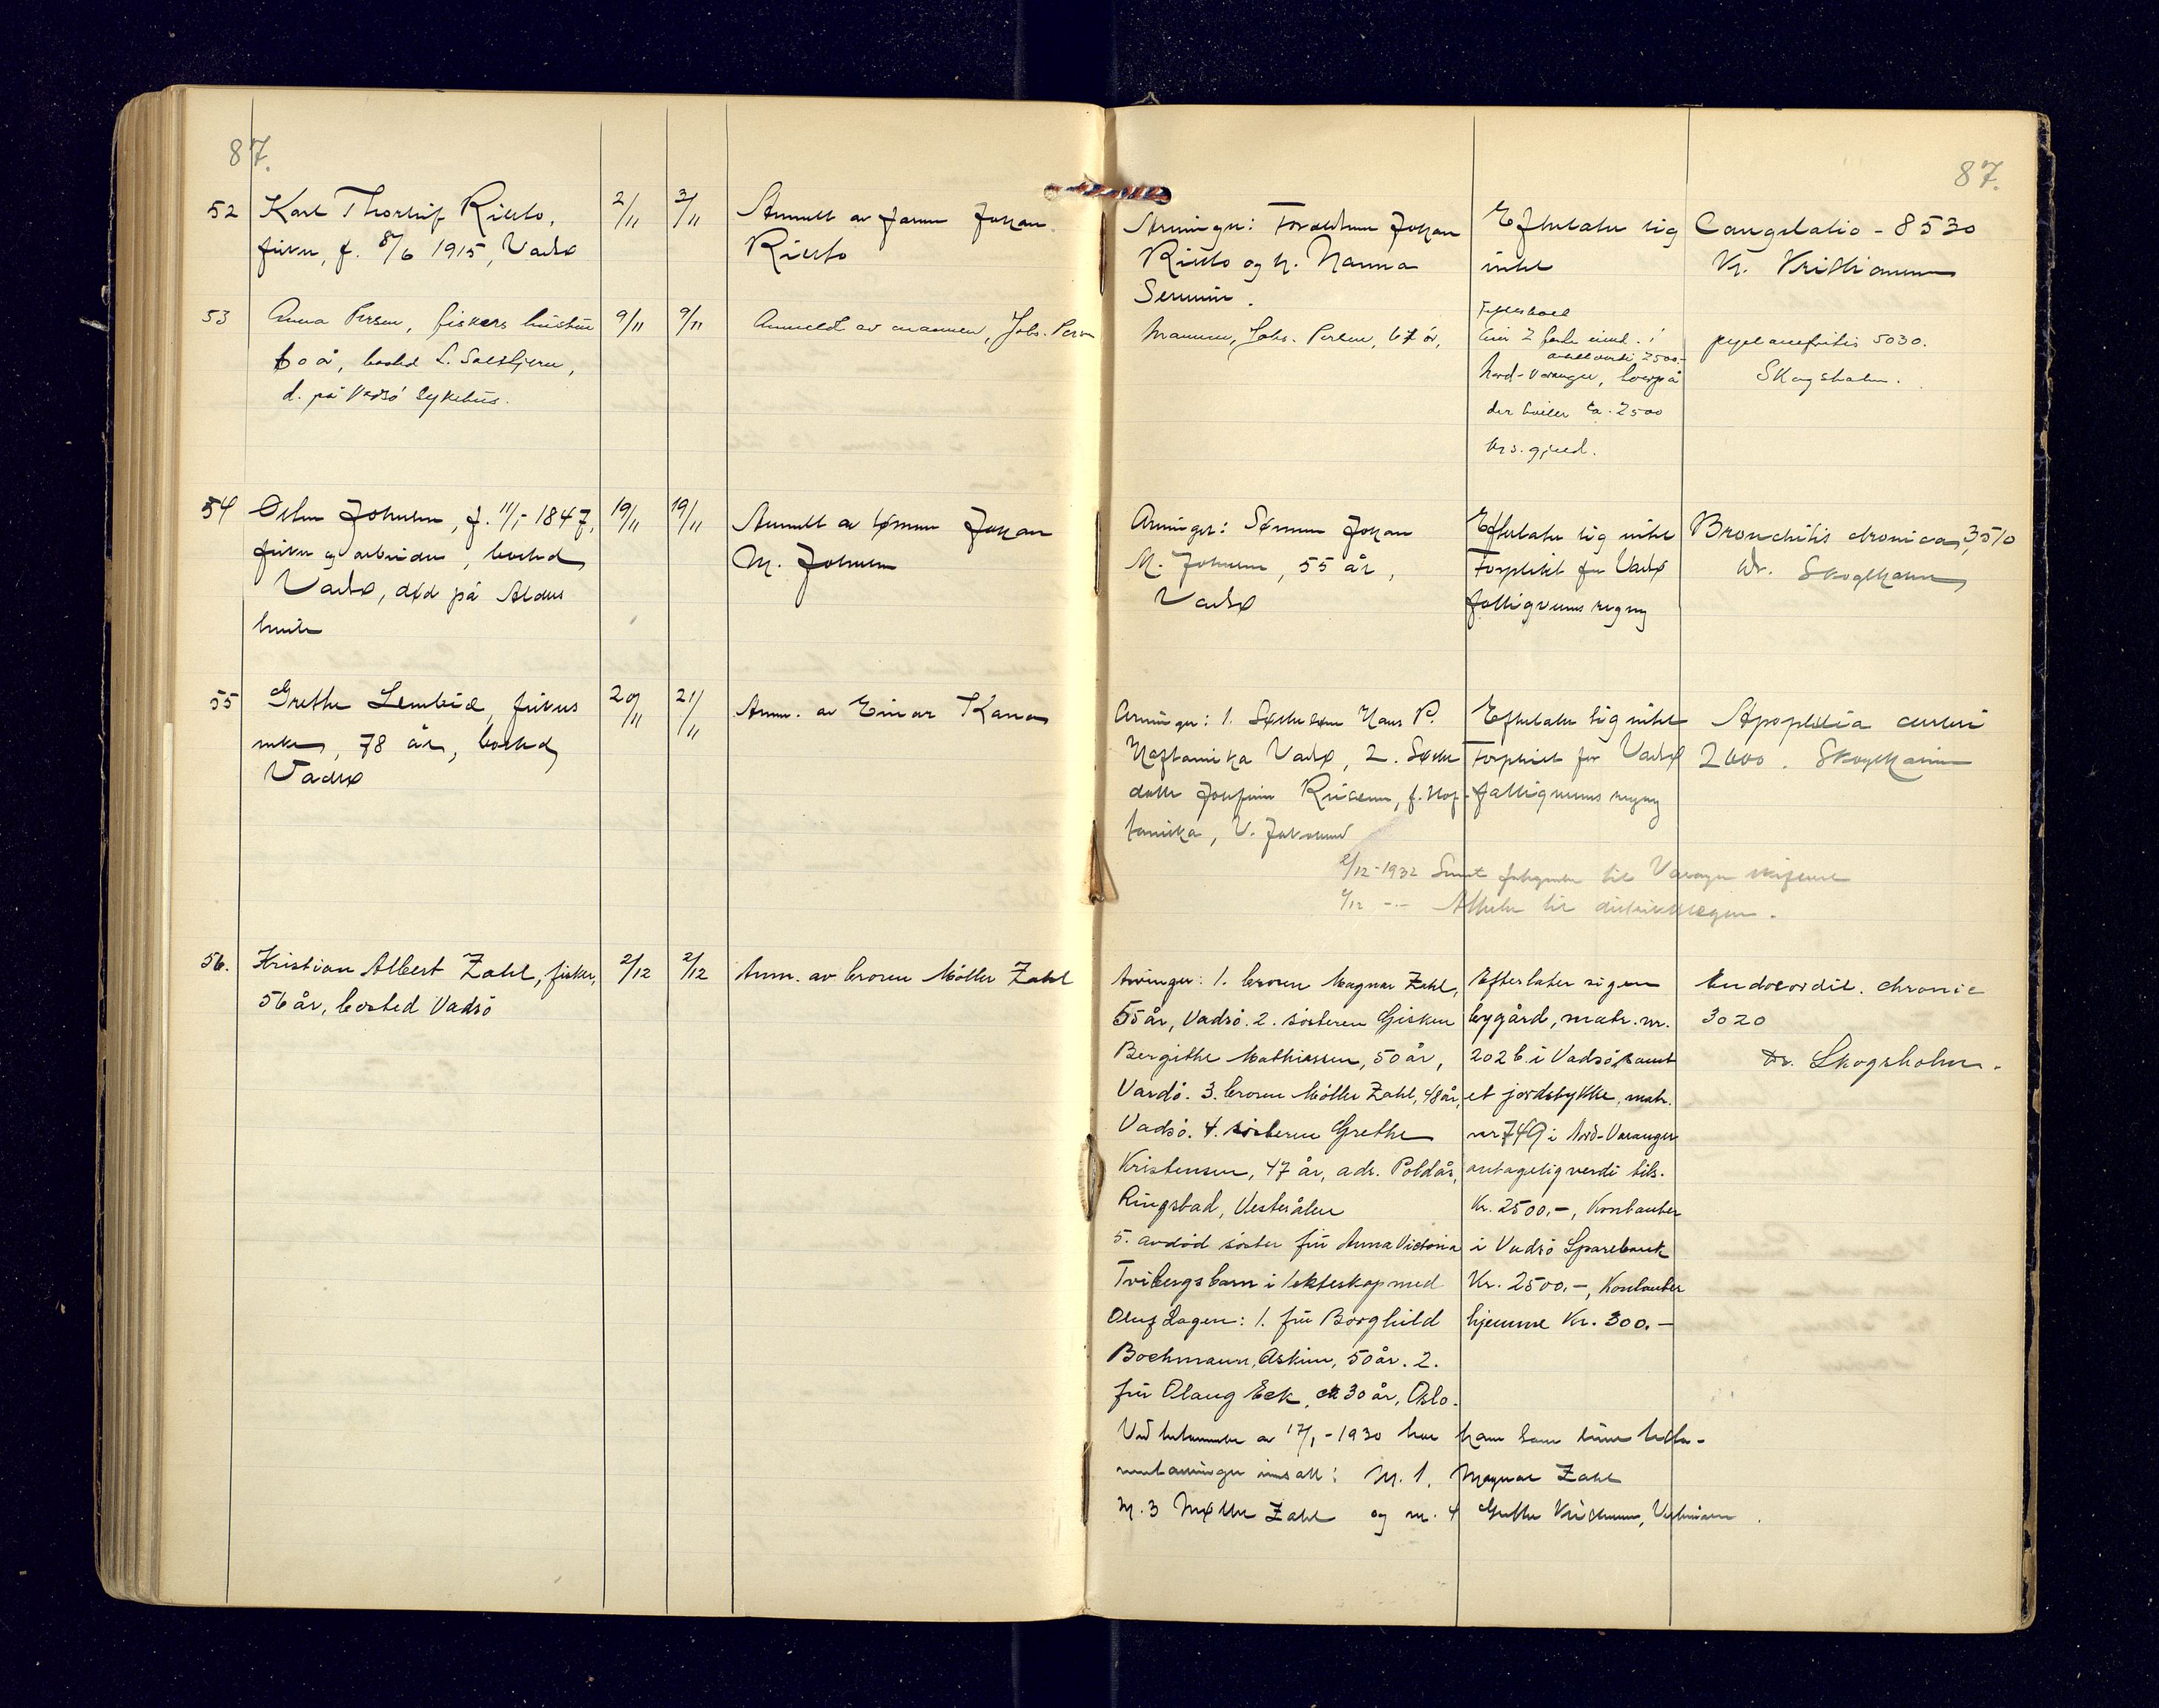 87.
87.
52 Karl Thorleif Riesto,
fisker, f. 8/6 1915, Vadsø
2/11
3/11
Anmeldt av faren Johan
Riesto
Arvinger: Foreldrene Johan
Riesto og h. Hanna
Efterlater sig
intet
Congelatio - 8530
Kr. Kristiansen
53 Anna Persen, fiskers hustru
60 å, bosted L. Salttjern,
d. på Vadsö Sykehus.
9/11
9/11
Anmeldt av mannen, Johs. Persen
Mannen, Johs. Persen, 67 år,
Fellesboet
Eier 2 eiend. i
antatt verdi 2500.-
Nord-Varanger, hvorpå
der hviler ca. 2500
krs. gjeld.
pyelonefritis 5030.
Skogsholm.
54 Johnsen, f. 11/1- 1847,
fisker og arbeider, bosted
Vadsø, død på Alders
hvile
19/11
19/11
Anmeldt av sønnen Johan
M. Johnsen
Arvinger: Sønnen Johan
M. Johnsen, 55 år,
Vadsø
Efterlater sig intet
Forpleiet for Vadsø
fattigvesens regning
Bronchitis chronica, 3510
Dr. Skogsholm
55 Grethe Lembid, fiskers
enke, 78 år, bosted
Vadsø
20/11
21/11
Anm. av Einar Kana
Arvinger: 1. Søstersøn Hans P.
Naftanika Vadsø, 2. Søster
datter Josefine
Efterlater sig intet
Forpleiet for Vadsø
fattigvesens regning
Apoplexia cerebri
2600. Skogsholm
2/12-1932 Sendt til Varanger
2/12 -"- til distriktslægen.
56. Kristian Albert Zahl, fisker,
56 år, bosted Vadsö
2/12
2/12
Anm. av broren Möller Zahl
Arvinger: 1. broren Magnar Zahl,
55 år, Vadsö. 2. sösteren Gisken
Bergithe Mathiassen, 50 år,
Vardö. 3. broren Möller Zahl, 48 år,
Vadsö. 4. sösteren Grethe
Kristensen, 47 år, adr. Poldås,
Ringstad, Vesterålen
5. avdöd söster frü Anna Victoria
Tvibergs barn i ekteskap med
Oluf Lagen: 1. frü Borghild
Bochmann, Askim, 50 år. 2.
frü Olaug Eek, ca 30 år, Oslo.
Efterlater sig en
bygård, matr. nr.
202 b. i Vadsö, samt
et jordstykke, matr.
nr 749 i Nord-Varanger
antagelig verdi tils.
Kr. 2500.-, Kontanter
i Vadsö Sparebank
Kr. 2500.-, Kontanter
hjemme Kr. 300.-
Endocordit. chronic
3020
Dr. Skogsholm.
Ved testamente av 17/1-1930 har han som sine testa-
mentarvinger innsatt: Nr. 1. Magnar Zahl
Nr. 3 Møller Zahl og nr. 4 Grethe Kristensen, Vesterålen